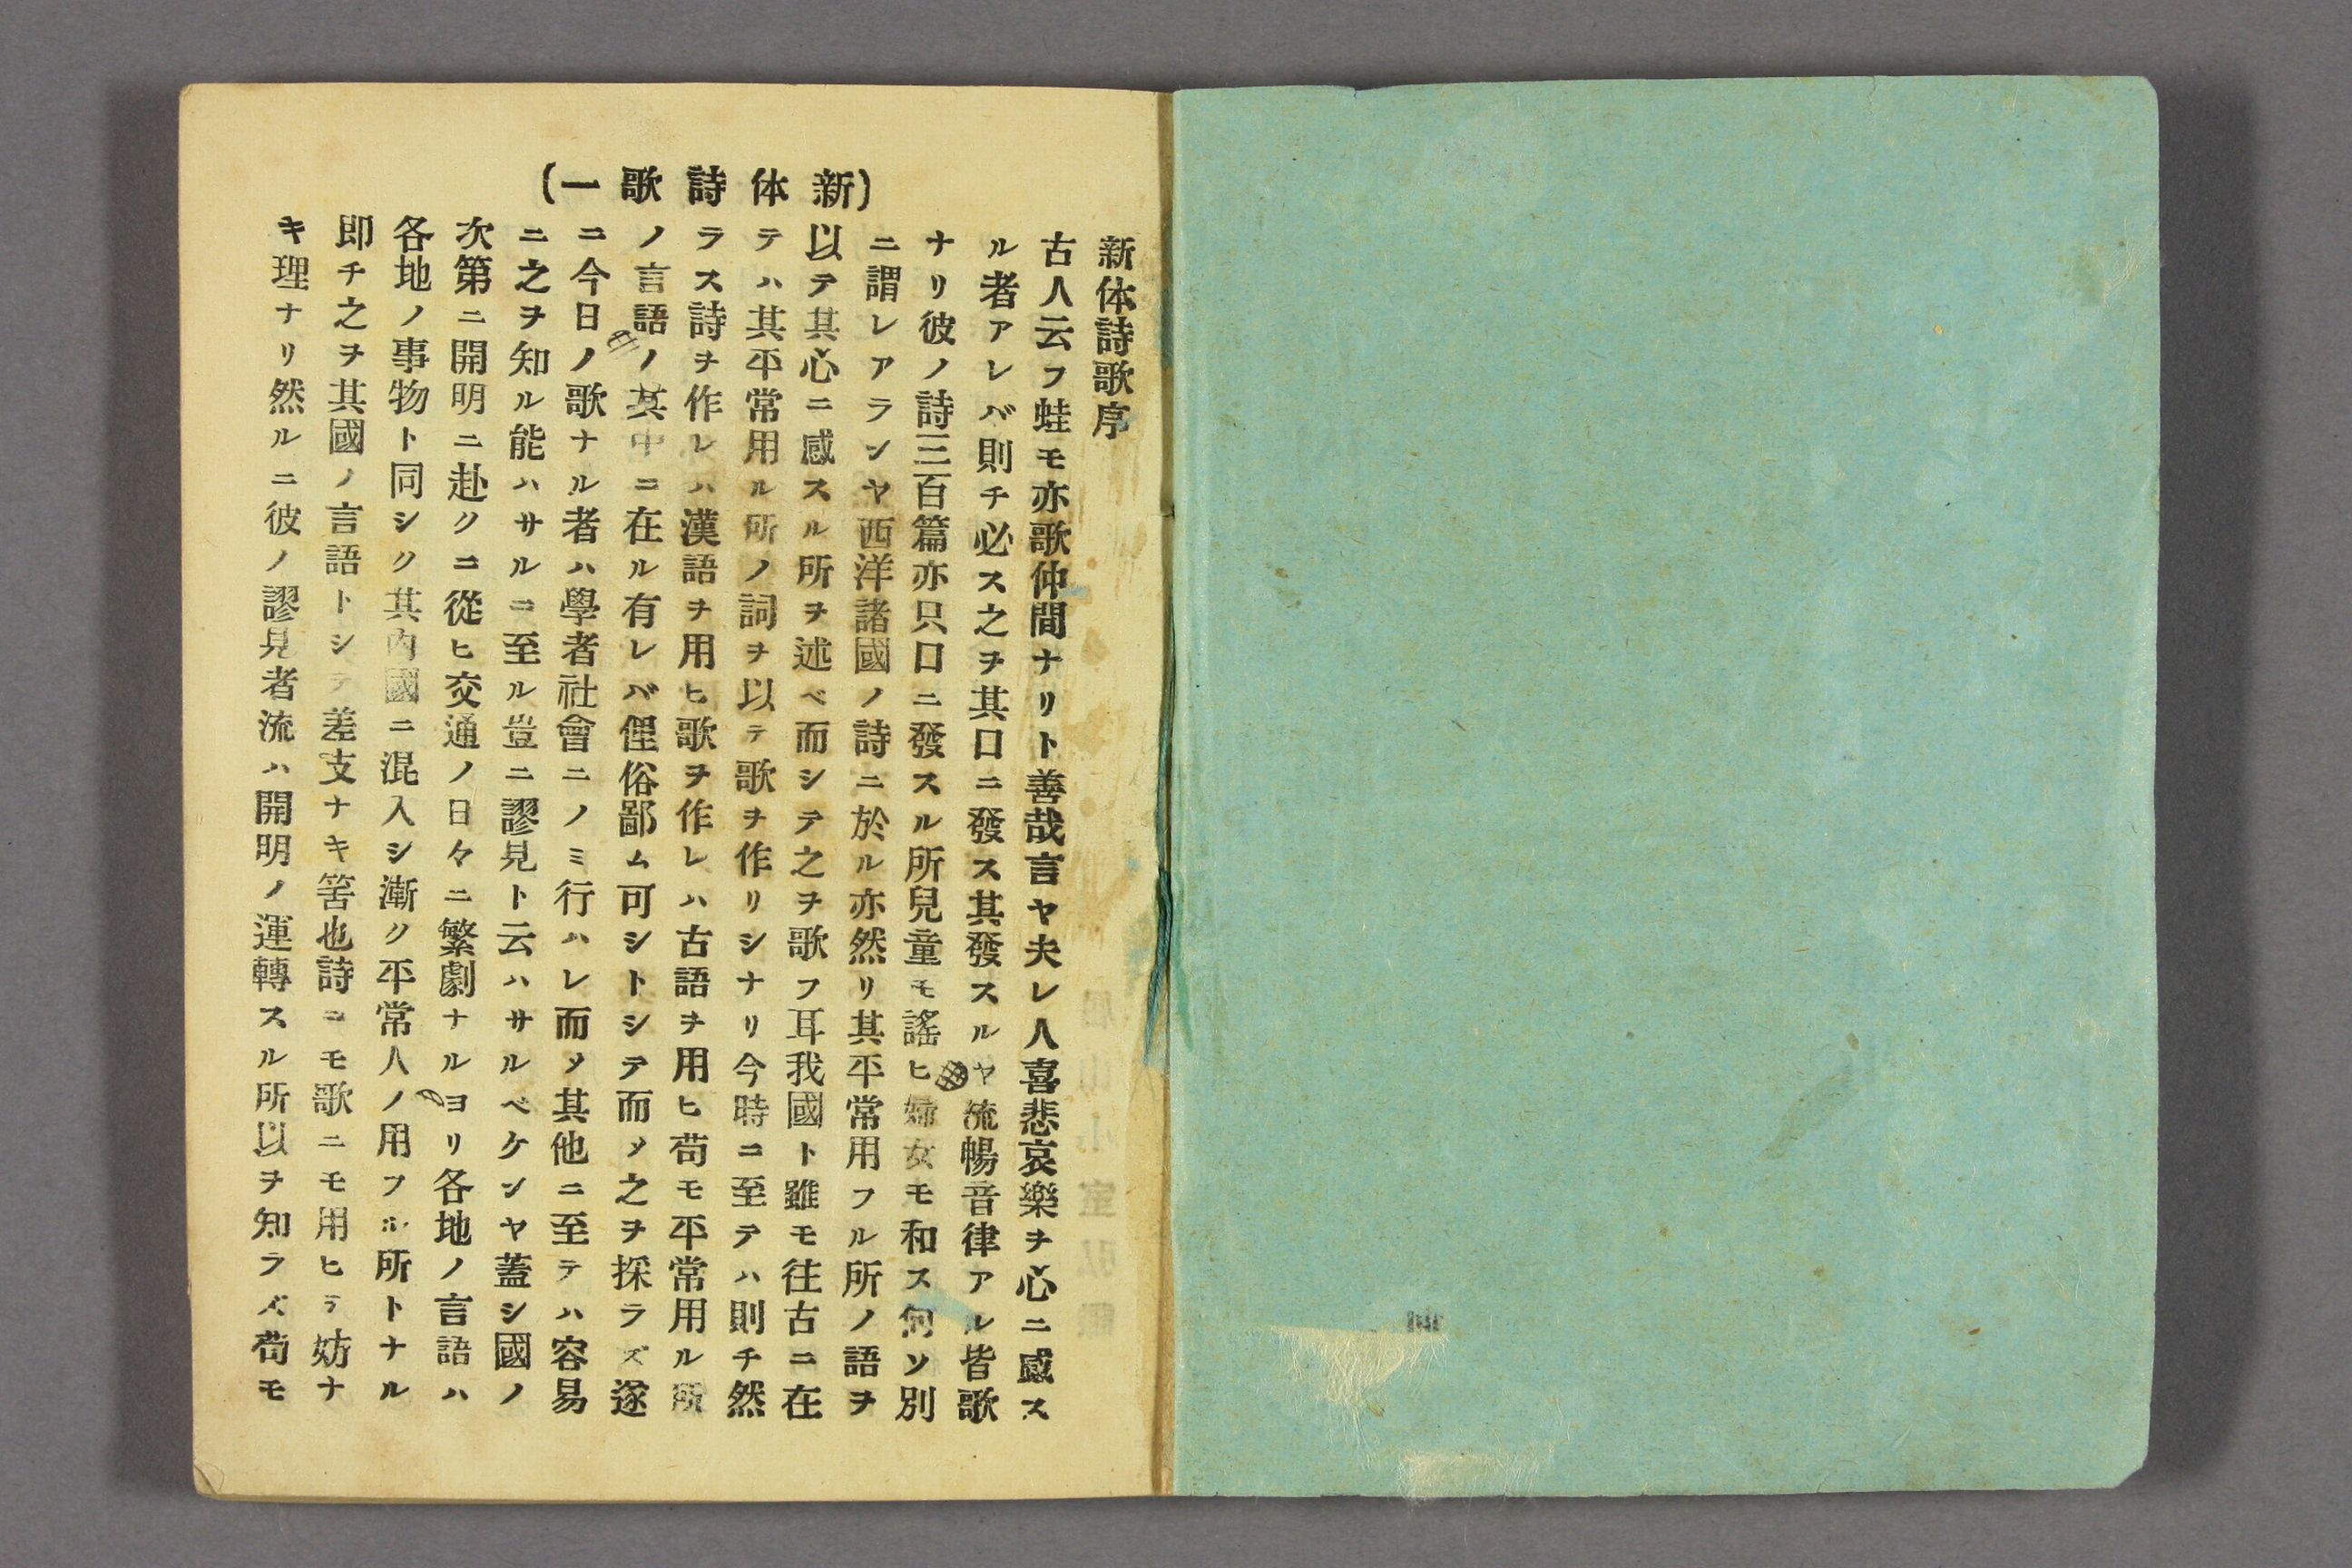 (新体詩歌一)
新体詩歌序
古人云フ蛙モ亦歌仲間ナリト善哉言ヤ夫レ人喜悲哀樂ヲ心ニ感ス
ル者アレバ則チ必ス之ヲ其口ニ發ス其發スルヤ流暢音律アル皆歌
ナリ彼ノ詩三百篇亦只口ニ發スル所兒童モ謠ヒ婦女モ和ス何ソ別
ニ謂レアランヤ西洋諸國ノ詩ニ於ル亦然リ其平常用フル所ノ語ヲ
以テ其心ニ感スル所ヲ述べ而シテ之ヲ歌フ耳我國ト雖モ往古ニ在
テハ其平常用ル所ノ詞ヲ以テ歌ヲ作リシナリ今時ニ至テハ則チ然
ラス詩ヲ作レハ漢語ヲ用ヒ歌ヲ作レハ古語ヲ用ヒ苟モ平常用ル所
ノ言語ノ其中ニ在ル有レバ俚俗鄙ム可シトシテ而〆之ヲ採ラズ遂
ニ今日ノ歌ナル者ハ學者社會ニノミ行ハレ而〆其他ニ至テハ容易
ニ之ヲ知ル能ハサルニ至ル豈ニ謬見ト云ハサルベケンヤ蓋シ國ノ
次第ニ開明ニ赴クニ從ヒ交通ノ日々ニ繁劇ナルヨリ各地ノ言語ハ
各地ノ事物ト同シク其内國ニ混入シ漸ク平常人ノ用フル所トナル
即チ之ヲ其國ノ言語トシテ差支ナキ筈也詩ニモ歌ニモ用ヒテ妨ナ
キ理ナリ然ルニ彼ノ謬見者流ハ開明ノ運轉スル所以ヲ知ラズ苟モ